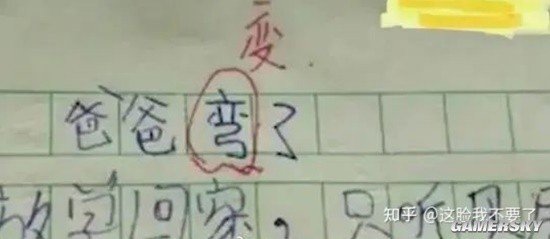 变.
爸爸弯了
放学回家，只听见
知乎 @这脸我不要了
GAMERSKY